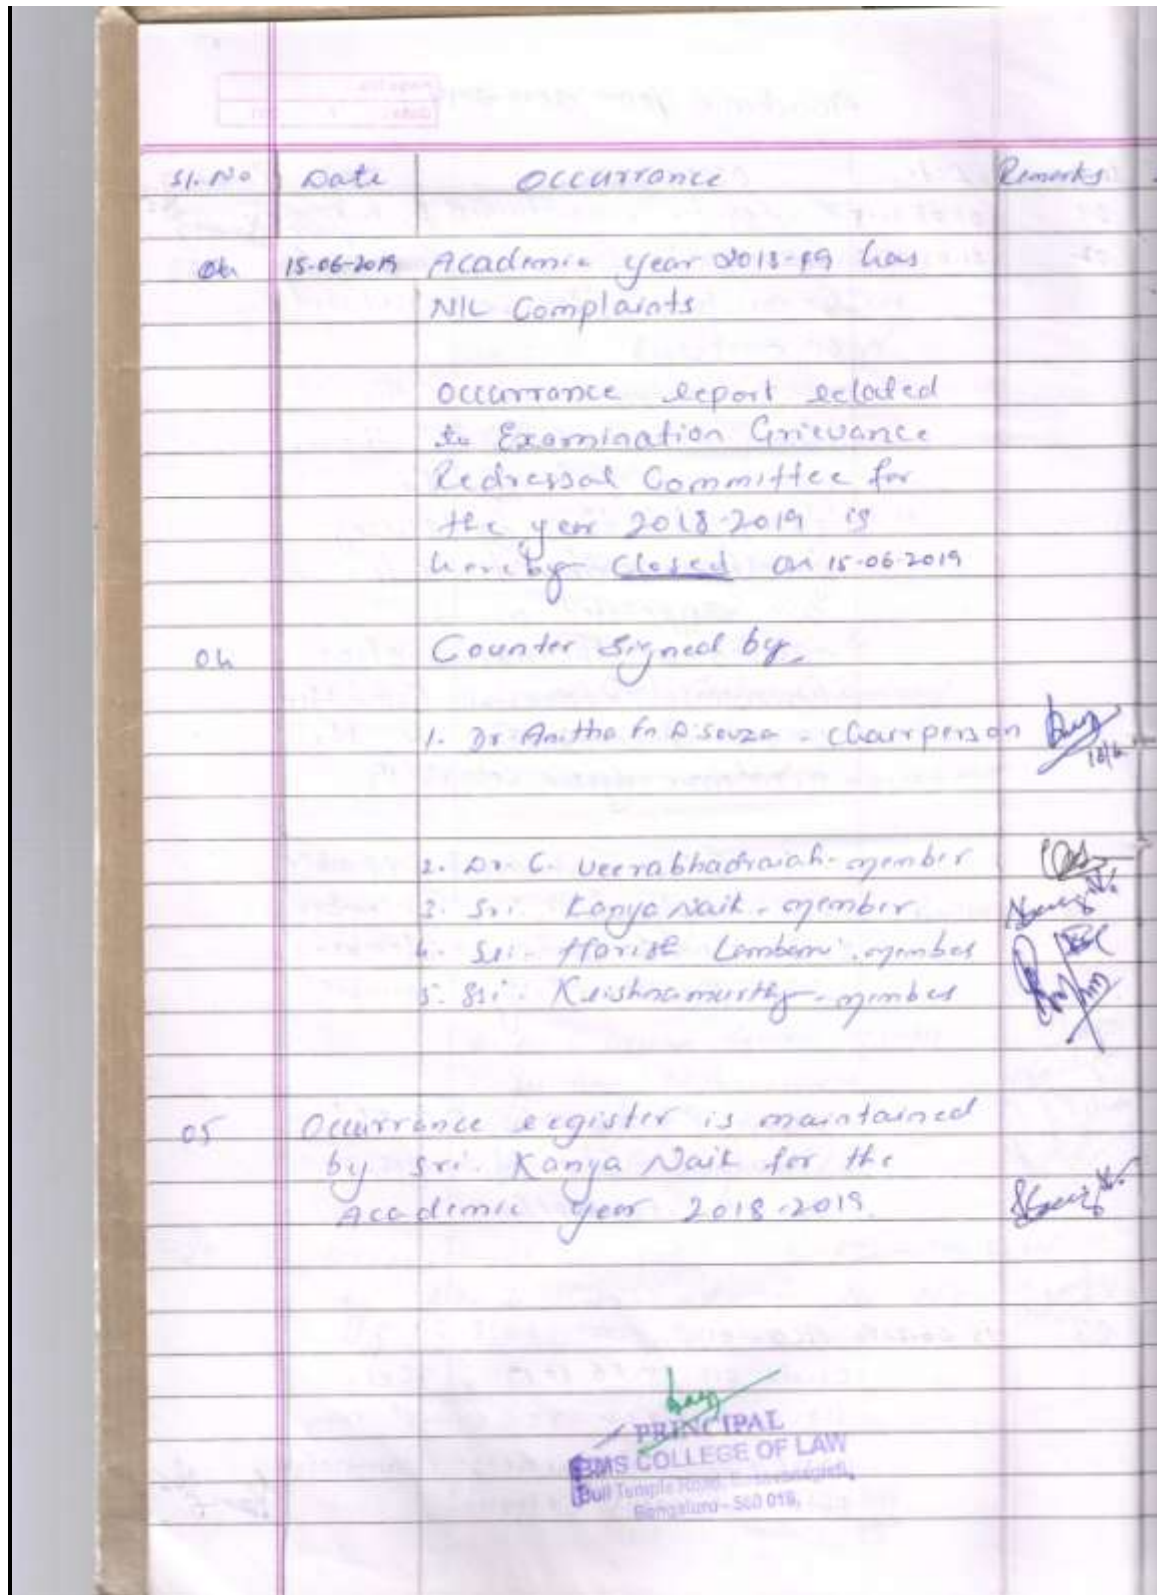 Sl. No Date Occurrance Remarks
04 15-06-2019 Academic year 2018-19 has
NIL Complaints
Occurrance report related
to Examination Grievance
Redressal Committee for
the year 2018-2019 is
hereby Closed on 15-06-2019
04 Counter Signed by,
1. Dr. Anitha Fn D'souza - Chairperson
2. Dr. C. Veerabhadraiah - member
3. Sri. Kanya Naik - member
4. Sri. Harish Lambani - member
5. Sri. Krishnamurthy - member
05 Occurrance register is maintained
by Sri. Kanya Naik for the
Academic year 2018-2019.
PRINCIPAL
BMS COLLEGE OF LAW
Bull Temple Road,
Bengaluru - 560 019.